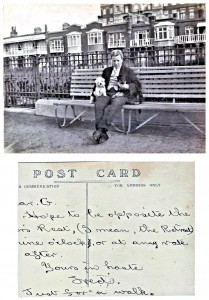 POST CARD
COMMUNICATION
FOR ADDRESS ONLY
ar. G.
Hope to be opposite the
's Rest, (I mean, the Retreat
une o'clock, or at any rate
after.
Yours in haste
Fred.
Just for a walk